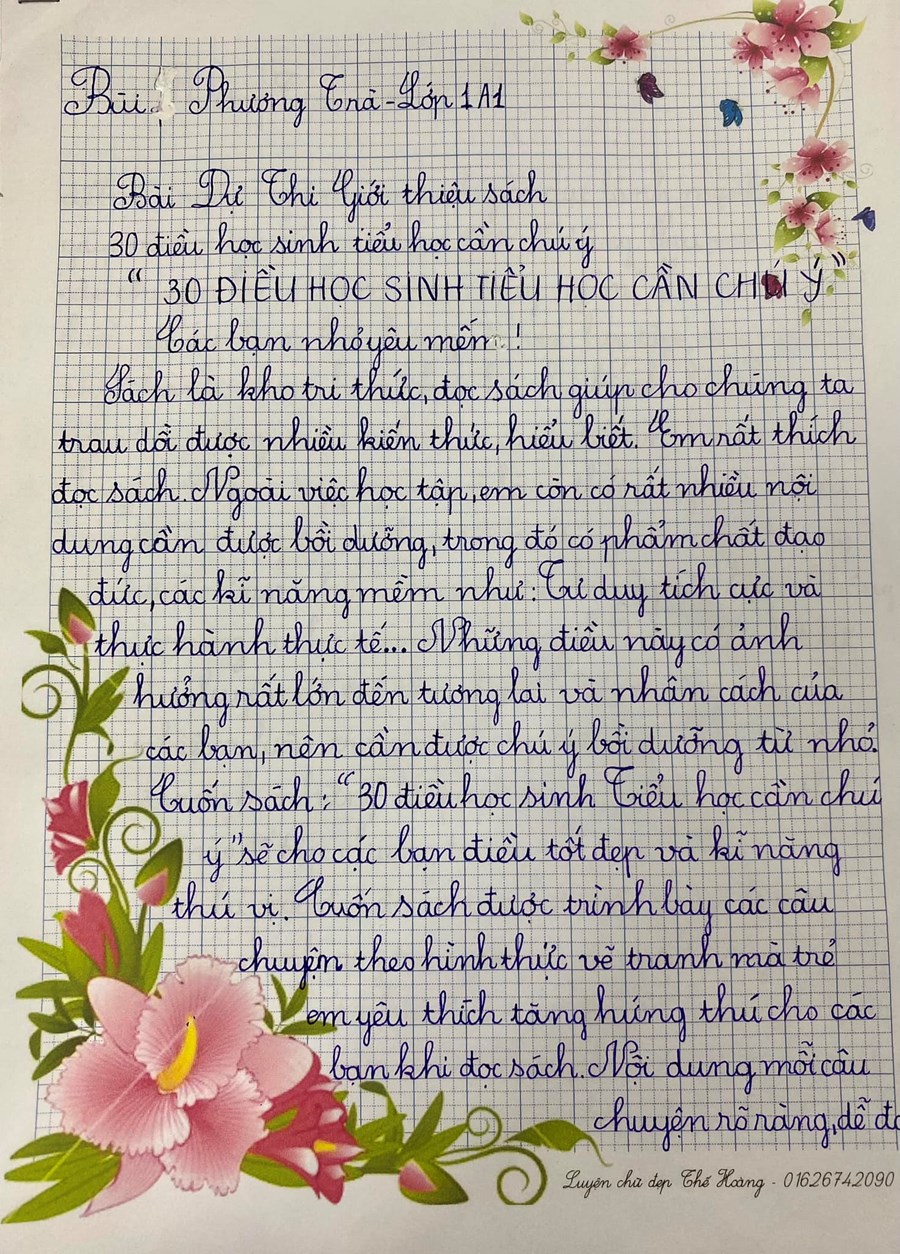 Bùi Phương Trà - Lớp 1A1
Bài Dự Thi Giới thiệu sách
30 điều học sinh tiểu học cần chú ý
“ 30 ĐIỀU HỌC SINH TIỂU HỌC CẦN CHÚ Ý”
Các bạn nhỏ yêu mến !
Sách là kho tri thức, đọc sách giúp cho chúng ta
trau dồi được nhiều kiến thức, hiểu biết. Em rất thích
đọc sách. Ngoài việc học tập, em còn có rất nhiều nội
dung cần được bồi dưỡng, trong đó có phẩm chất đạo
đức, các kĩ năng mềm như: Tư duy tích cực và
thực hành thực tế... Những điều này có ảnh
hưởng rất lớn đến tương lai và nhân cách của
các bạn, nên cần được chú ý bồi dưỡng từ nhỏ.
Cuốn sách: “30 điều học sinh Tiểu học cần chú
ý” sẽ cho các bạn điều tốt đẹp và kĩ năng
thú vị. Cuốn sách được trình bày các câu
chuyện theo hình thức vẽ tranh mà trẻ
em yêu thích tăng hứng thú cho các
bạn khi đọc sách. Nội dung mỗi câu
chuyện rõ ràng, dễ đọ
Luyện chữ đẹp Thế Hoàng - 01626742090